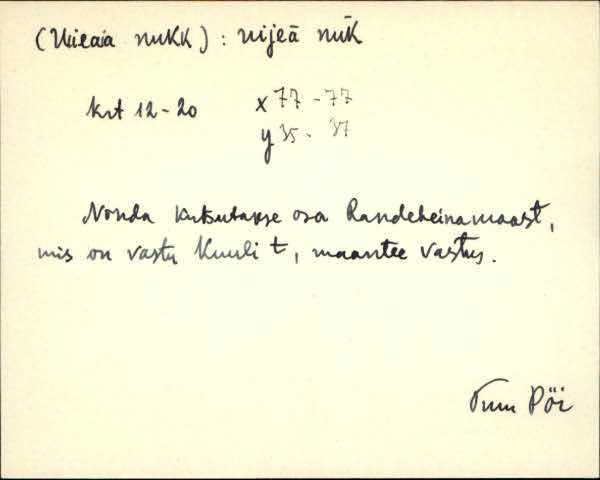 (Uieaia nukk) : uijeā nūk
krt 12-20 x 77-77
y 35- 37
Nonda kutsutakse osa Randeheinamaast,
mis on vastu Kuuli t, maantee vastu.
Pöi